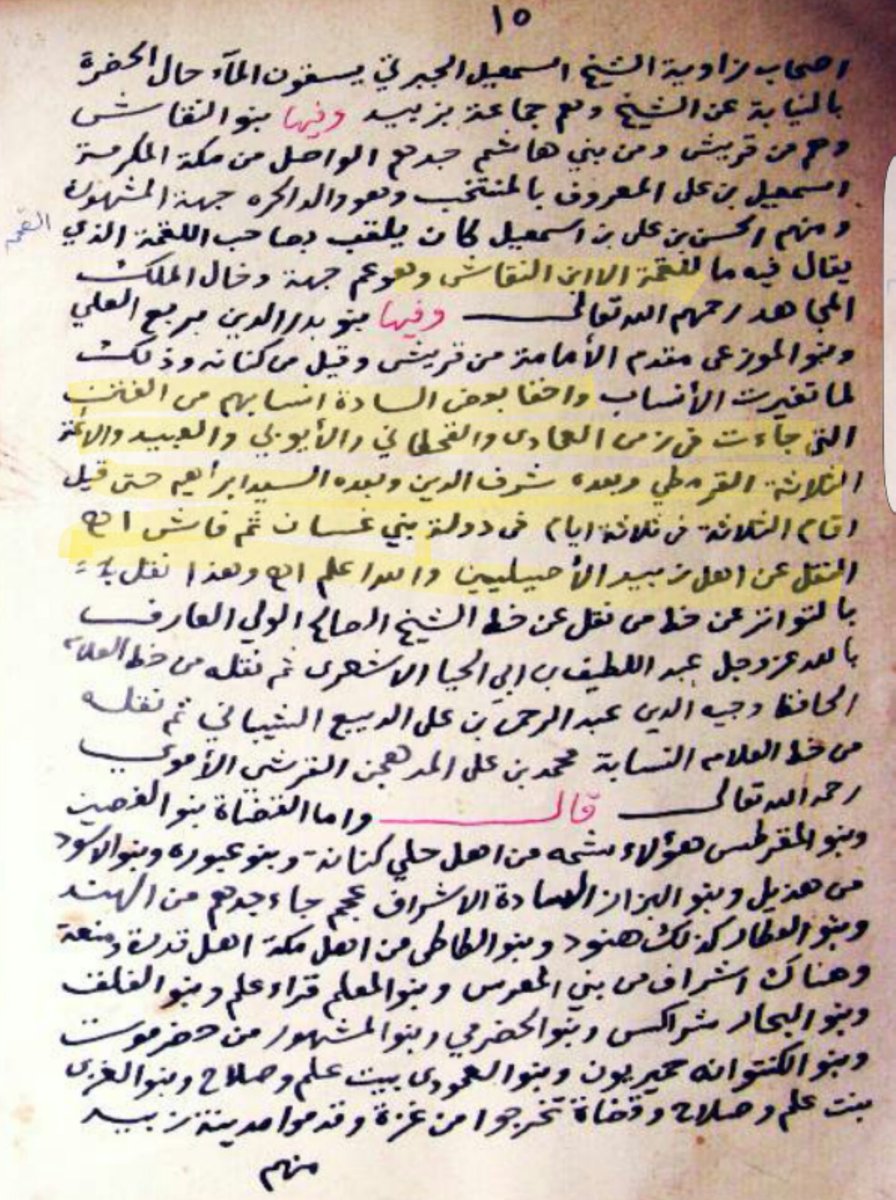 ١٥
اصحاب زاوية الشيخ اسمعيل الجبرتي يسقون المآء حال الحضرة
بالنيابة عن الشيخ وهم جماعة بزبيد وفيها بنو النقاش
وهم من قريش ومن بني هاشم جدهم الواصل من مكة المكرمة
اسمعيل بن على المعروف بالمنتخب وهو والد الحره جهة المشهورة
ومنهم الحسن بن على بن اسمعيل كان يلقب بصاحب اللقمة الذي
يقال فيه ما للقمة الا ابن النقاش وهو عم جهة وخال الملك
المجاهد رحمهم الله تعالى وفيها بنو بدر الدين مربع العلي
وبنو الموزعى مقدم الأمامة من قريش وقيل من كنانه وذلك
لما تغيرت الأنساب واخفا بعض السادة انسابهم من الفتن
التى جاءت فى زمن العبادى والقحطاني والأيوبي والعبيد والأئمة
الثلاثة القرمطي وبعده شرف الدين وبعده السيد ابراهيم حتى قيل
اقام الثلاثة فى ثلاثة ايام فى دولة بني غسان ثم فاش اھ
النقل عن اهل زبيد الأصيليين والله اعلم اھ وهذا نقل
بالتواتر عن خط من نقل عن خط الشيخ الصالح الولي العارف
بالله عز وجل عبد اللطيف بن ابي الحيا الاشعرى ثم نقله من خط العلامه
الحافظ وجيه الدين عبد الرحمن بن على الديبع الشيباني ثم نقله
من خط العلامه النسابة محمد بن على المدهجن القرشي الأموي
رحمه الله تعالى قال واما القضاة بنو الغصين
وبنو المقرطس هؤلاء من اهل حلي كنانة وبنو عبوره وبنو الاسود
من هذيل وبنو البزاز السادة الاشراف عجم جاء جدهم من الهند
وبنو العطار كذلك هنود وبنو الطاطى من اهل مكة اهل قدرة ومنعة
وهناك اشراف من بني المعرس وبنو المعلم قراء علم وبنو الفلفل
وبنو البحار شراكس وبنو الحضرمي وبنو المشهور من حضرموت
وبنو الكنتوانه حميريون وبنو العمودى بيت علم وصلاح وبنو الغزى
بيت علم وصلاح وقضاة تخرجوا من غزة وقدموا مدينة زبيد
منهم